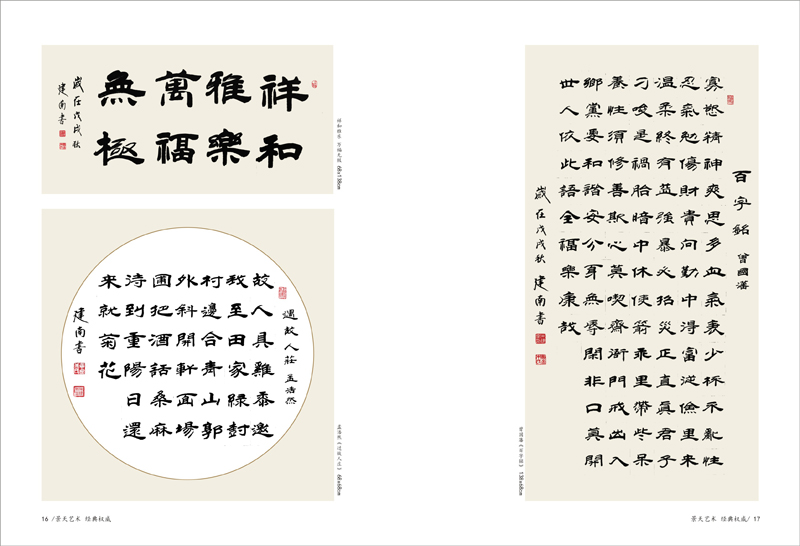 祥和
雅樂
萬福
無極
歲在戊戌秋
建南書
祥和雅乐 万福无极 68x138cm
過故人莊 孟浩然
故人具雞黍邀
我至田家綠樹
村邊合青山郭
外斜開軒面場
圃把酒話桑麻
待到重陽日還
來就菊花
建南書
孟浩然《过故人庄》 68x68cm
16 /景天艺术 经典权威
百字銘 曾國藩
寡慾精神爽思多血氣衰少杯不亂性
忍氣勉傷財貴向勤中得富從儉里來
溫柔終有益強暴必招災正直真君子
刁唆是禍胎暗中休使箭乖里帶些呆
養性須修善欺心莫喫齋衙門戒出入
鄉黨要和諧安分身無辱閑非口莫開
世人依此語全福樂康哉
歲在戊戌秋 建南書
曾国藩《百字铭》 138x68cm
景天艺术 经典权威/ 17